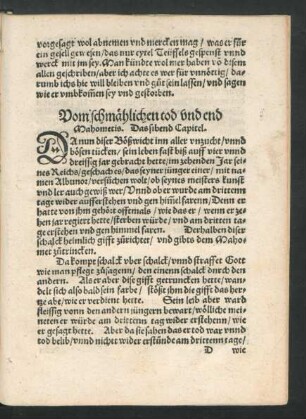 vorgesagt wol abnemen vnd mercken mag / was er für
ein geselligen esen / das nur eytel Teüffels gespenst vnnd
werck mit jm sey. Man kündte wol mer haben võ disem
allen geschriben / aber ich achte es wer für vnnötig / da-
rumb ichs hie will bleiben vnd güt sein lassen / vnd sagen
wie er vmbkom̃en sey vnd gestorben.
Vom schmählichen tod vnd end
Mahometis. Das sibend Capitel.
DA nun diser Bößwicht inn aller vnzucht / vnnd
bösen tücken / sein leben fast biß auff vier vnnd
dreissig jar gebracht hette / im zehenden Jar sei-
nes Reichs / geschach es / das seyner jünger einer / mit na-
men Albunor / versüchen wolt / ob seynes meisters kunst
vnd ler auch gewiß wer / Vnnd ob er wurde am drittenn
tage wider aufferstehen vnd gen himel farenn / Denn er
hatte von jhm gehöit offtemals / wie das er / wenn er ze-
hen jar regiert hette / sterben würde / vnd am dritten ta-
ge erstehen vnd gen himmel faren. Derhalben diser
schalck heimlich gifft zürichtet / vnd gibts dem Maho-
mer zütrincken.
Da kompt schalck vber schalck / vnnd straffet Gott
wie man pflegt züsagenn / den einenn schalck durch den
andern. Als er aber dise gifft getruncken hette / wann-
delt sich also bald sein farbe / stößt jhm die gifft das her-
tze abe / wie er verdient hette. Sein leib aber ward
fleissig vonn den andern jüngern bewart / wölliche mei-
neten er würde am dritten tag wider erstehenn / wie
er gesagt hette. Aber da sie sahen das er tod war vnnd
tod belib / vnnd nicht wider erstünde am drittenn tage /
D wie